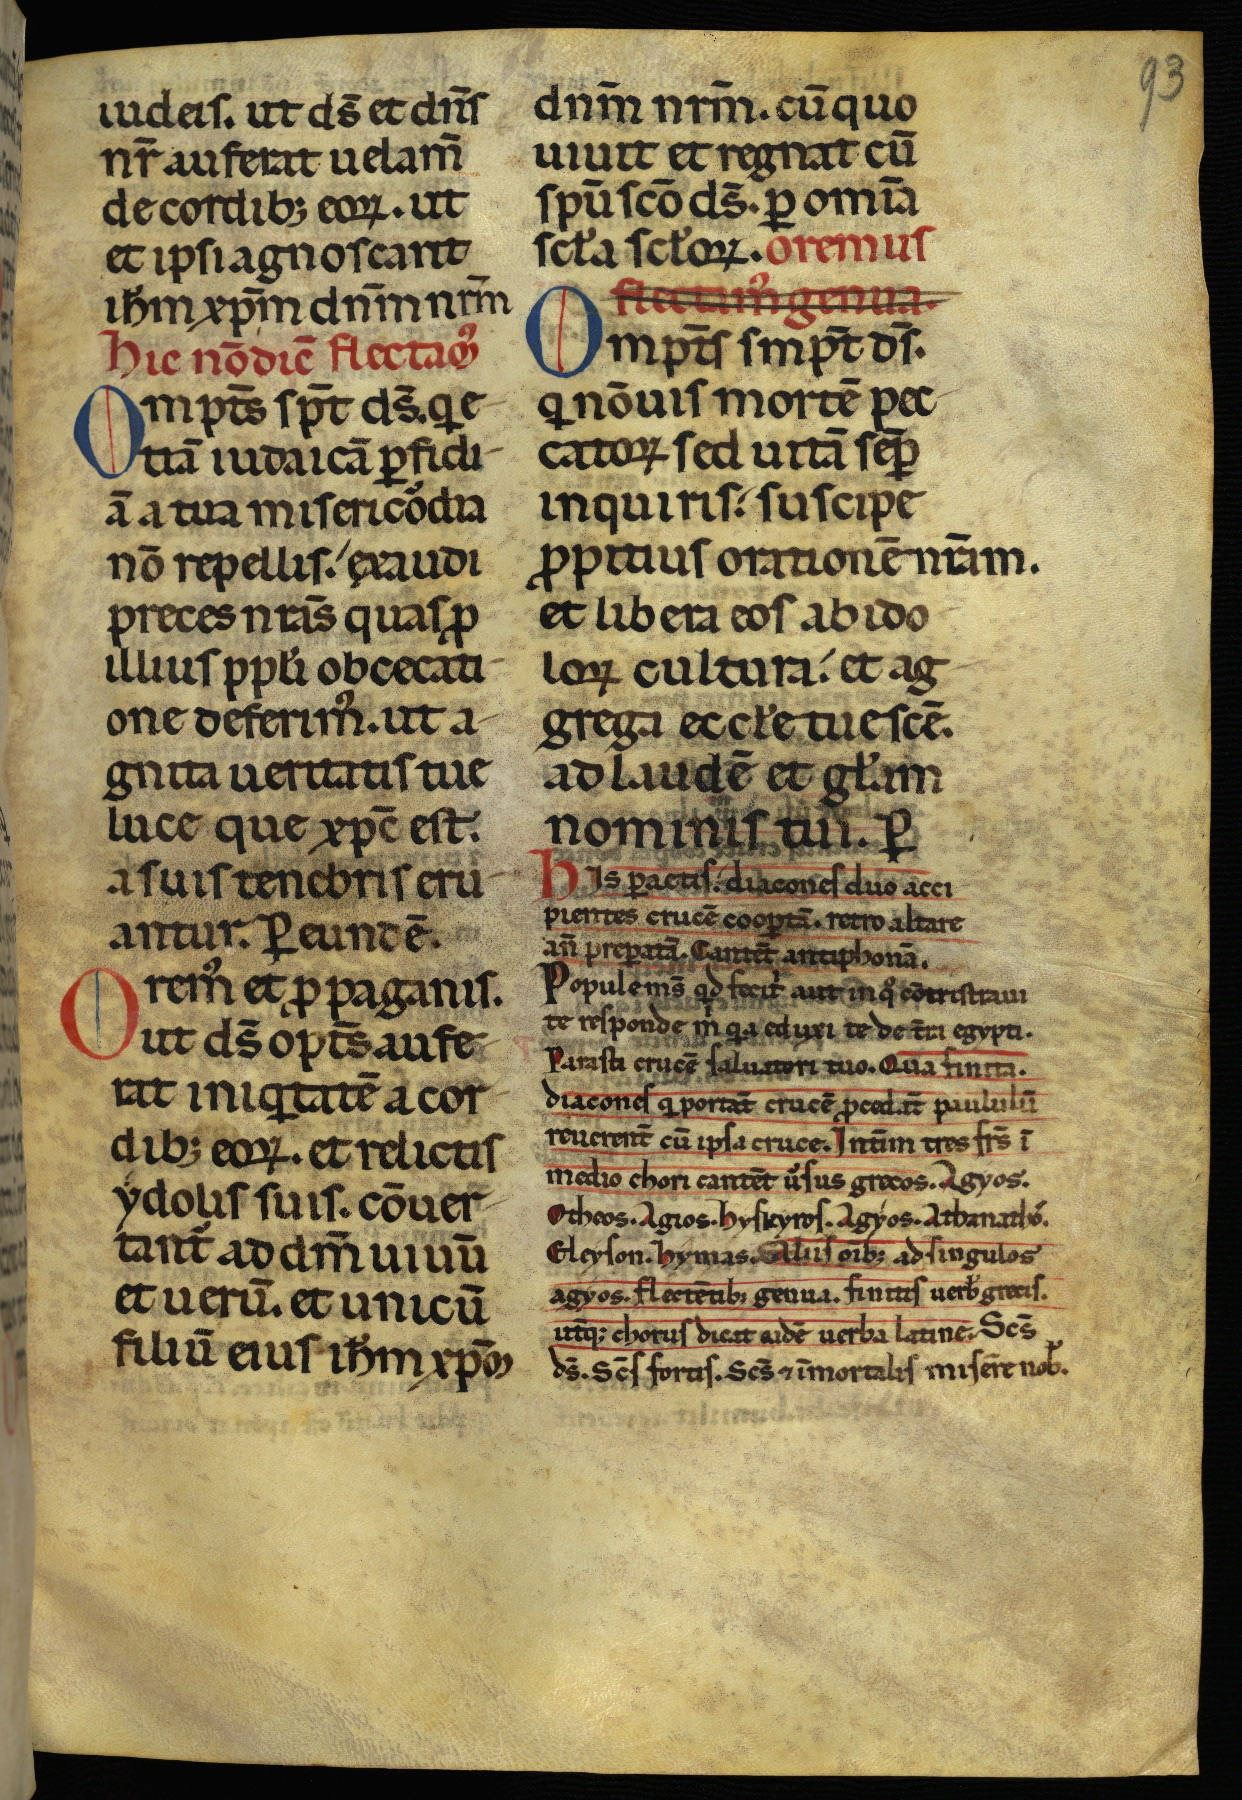 93
iudeis. ut ds̄ et dn̄s
nr̄ auferat uelam̄
de cordib; eoꝝ. ut
et ipsi agnoscant
ih̄m xp̄m dn̄m nr̄m
hic nōdiē flectamꝰ
Omp̄ts sp̄t ds̄. q̄ e
tiā iudaicā ꝑfidi
ā a tua misericordia
nō repellis. exaudi
preces nr̄as quas ꝓ
illius ppl̄i obcecati
one deferimꝰ. ut a
gnita ueritatis tue
luce que xp̄c est.
a suis tenebris eru
antur. Ꝑ eundē.
Oremꝰ et ꝓ paganis.
ut ds̄ op̄ts aufe
rat iniqͥtatē a cor
dib; eoꝝ. et relictis
ydolis suis. cōuer
tantᷣ ad dm̄ uiuū
et uerū. et unicū
filiū eius ih̄m xp̄m
dn̄m nr̄m. cū quo
uiuit et regnat cū
sp̄u sc̄o ds̄. ꝑ om̄ia
scl̄a scl̄oꝝ. oremus
flectamꝰ genua.
Omp̄ts smp̄t ds̄.
q nō uis mortē pec
catoꝝ sed uitā sēꝑ
inquiris. suscipe
ꝓpitius orationē nr̄am.
et libera eos ab ido
loꝝ cultura. et ag
grega eccl̄e tue sc̄e.
ad laudē et gl̄am
nominis tui. Ꝑ
His ꝑactis. diacones duo acci
pientes crucē cooꝑtā. retro altare
an̄ preparatā. Cantēt antiphonā.
Popule ms̄ qd feci tͥ aut in qͦ cōtristaui
te responde m̄ q̄a eduxi te de t̄ra egypti.
Parasti crucē saluatori tuo. Qua finita.
diacones q portāt crucē ꝓcedāt paululū
reuerent̄ cū ipsa cruce. Int̄im tres frs̄ ī
medio chori cantēt ūsus grecos. Agyos.
Otheos. Agios. hyskyros. Agyos. Athanathos.
Eleyson. hymas. Aliis oīb; ad singulos
agyos. flectētib; genua. finitis uerb̄ grecis.
utq; chorus dicat eadē uerba latine. Sc̄s
ds̄. Sc̄s fortis. Sc̄s ⁊ īmortalis misēre nob̄.